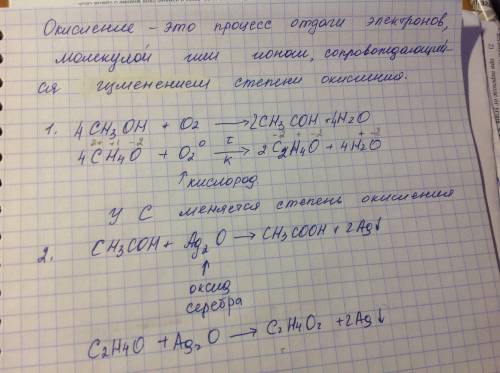 Окисление - это процесс отдачи электронов,
молекулой или ионом, сопровождающий-
ся изменением степени окисления.
1. 4 CH3OH + O2 → 2CH3COH + 4H2O
4 CH4O + O2⁰ → 2 C2H4O + 4H2O
t
k
↑ кислород
У С меняется степень окисления
2. CH3COH + Ag2O → CH3COOH + 2Ag↓
↑
оксид
серебра
C2H4O + Ag2O → C2H4O2 + 2Ag↓